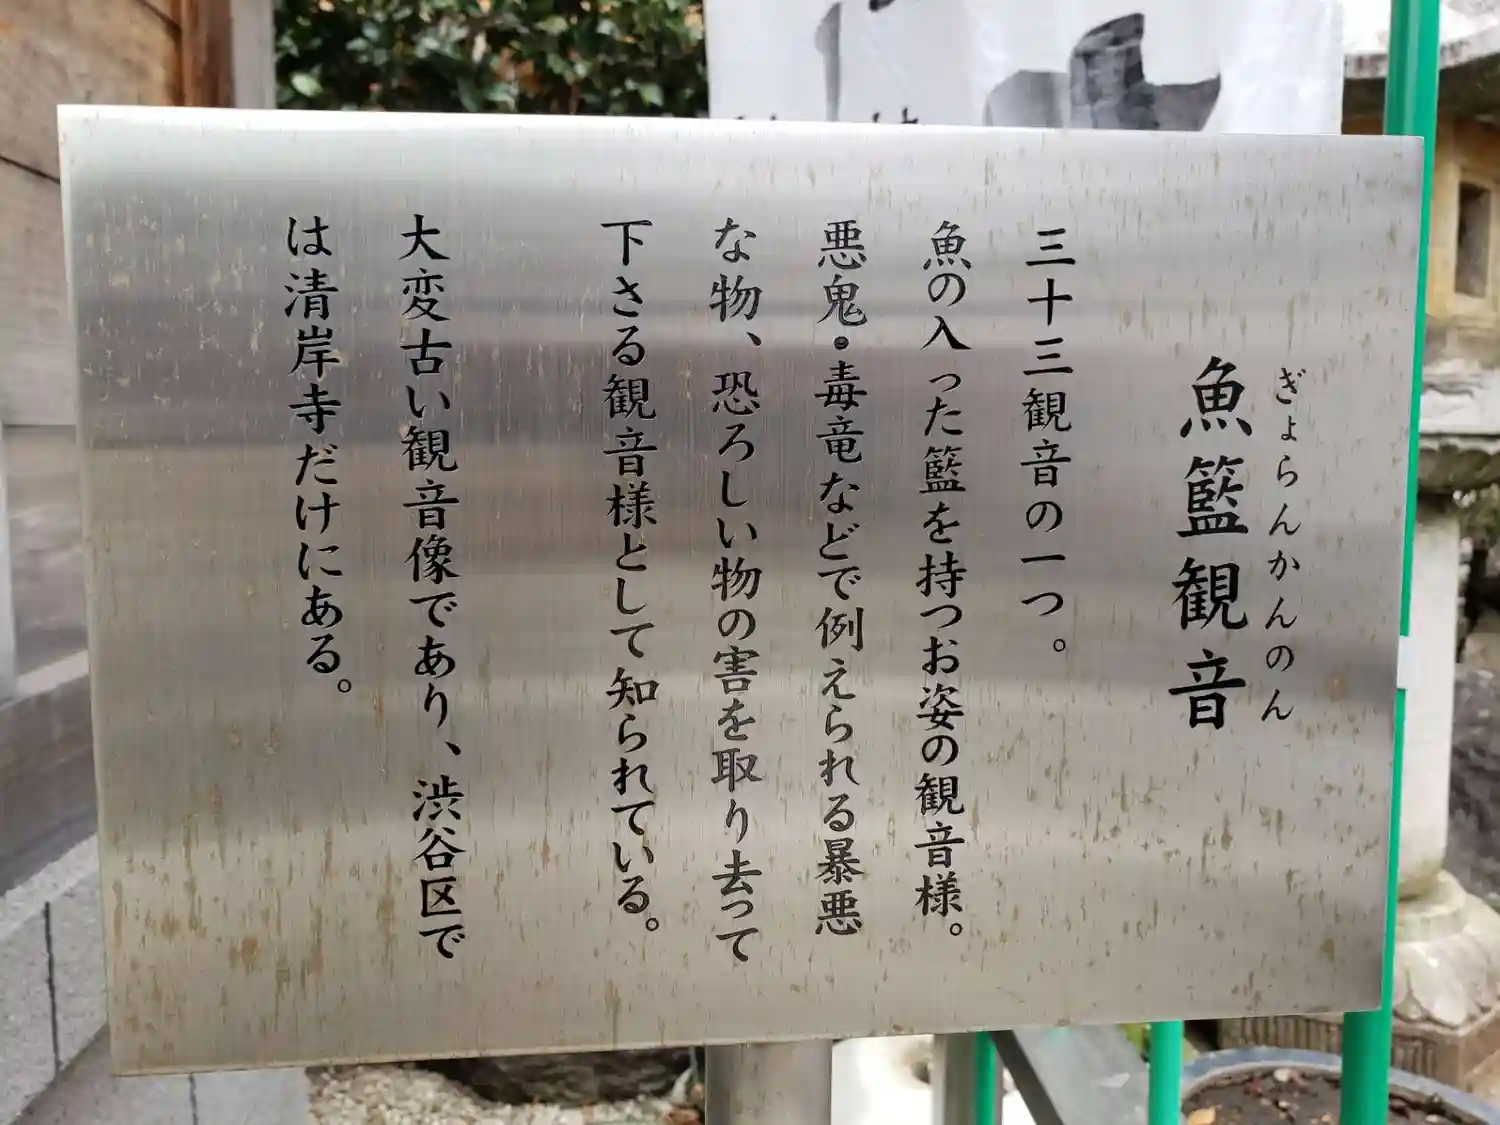 魚籃観音
ぎょらんかんのん
三十三観音の一つ。
魚の入った籃を持つお姿の観音様。
悪鬼・毒竜などで例えられる暴悪
な物、恐ろしい物の害を取り去って
下さる観音様として知られている。
大変古い観音像であり、渋谷区で
は清岸寺だけにある。